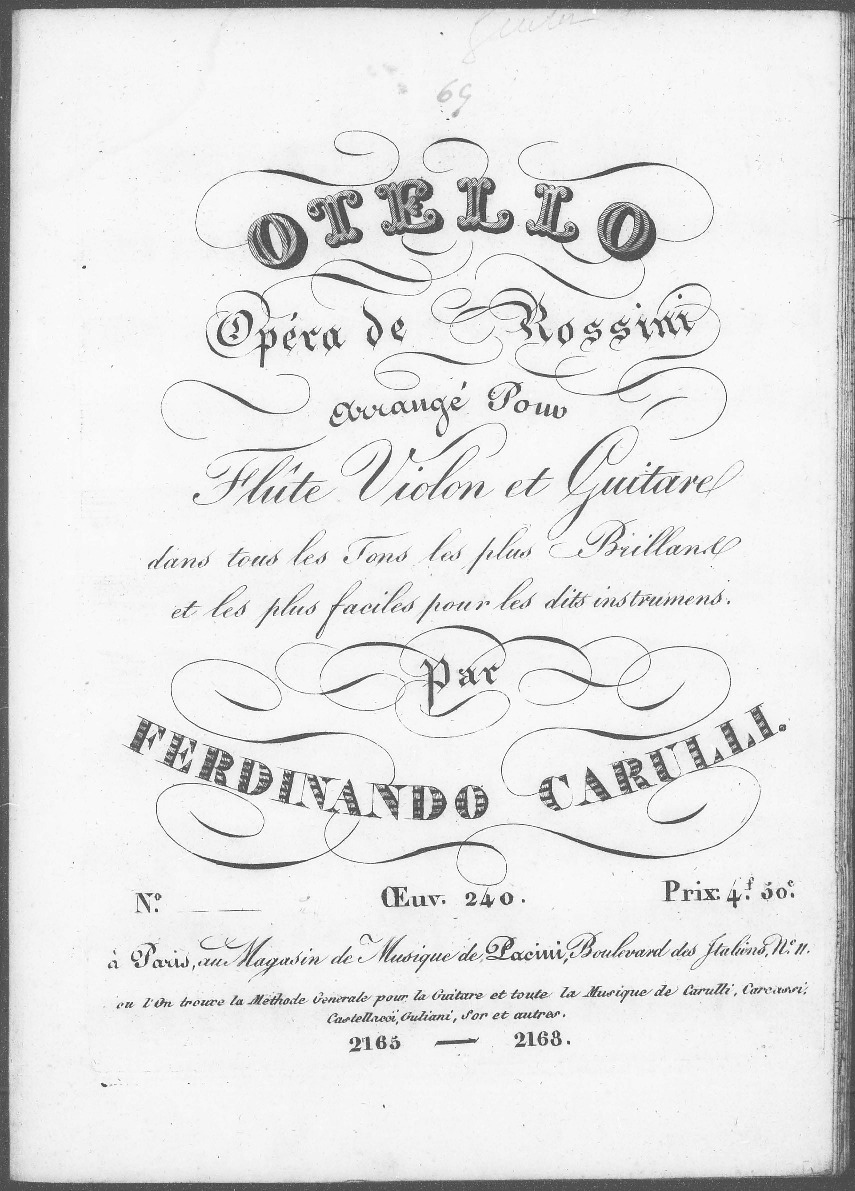 69
OTELLO
Opéra de Rossini
Arrangé Pour
Flûte Violon et Guitare
dans tous les Tons les plus Brillans
et les plus faciles pour les dits instrumens.
Par
FERDINANDO CARULLI.
N.º Œuv. 240. Prix 4.f 50.c
à Paris, au Magasin de Musique de Pacini, Boulevard des Italiens, N.º 11.
ou l'On trouve la Méthode Generale pour la Guitare et toute la Musique de Carulli, Carcassi,
Castellacci, Guliani, Sor et autres.
2165 — 2168.